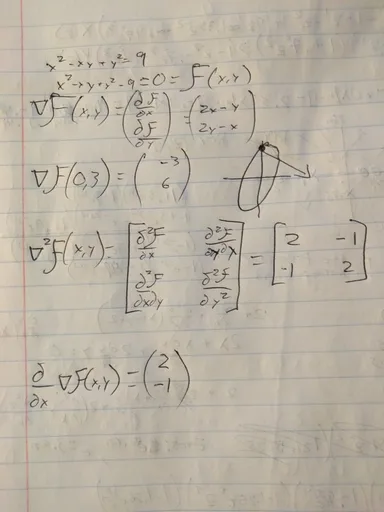 x² - xy + y² = 9
x² - xy + y² - 9 = 0 = F(x,y)
∇F(x,y) = (∂F/∂x ∂F/∂y) = (2x-y 2y-x)
∇F(0,3) = (-3 6)
∇²F(x,y) = [∂²F/∂x ∂²F/∂y∂x ∂²F/∂x∂y ∂²F/∂y²] = [2 -1 -1 2]
∂/∂x ∇F(x,y) = (2 -1)